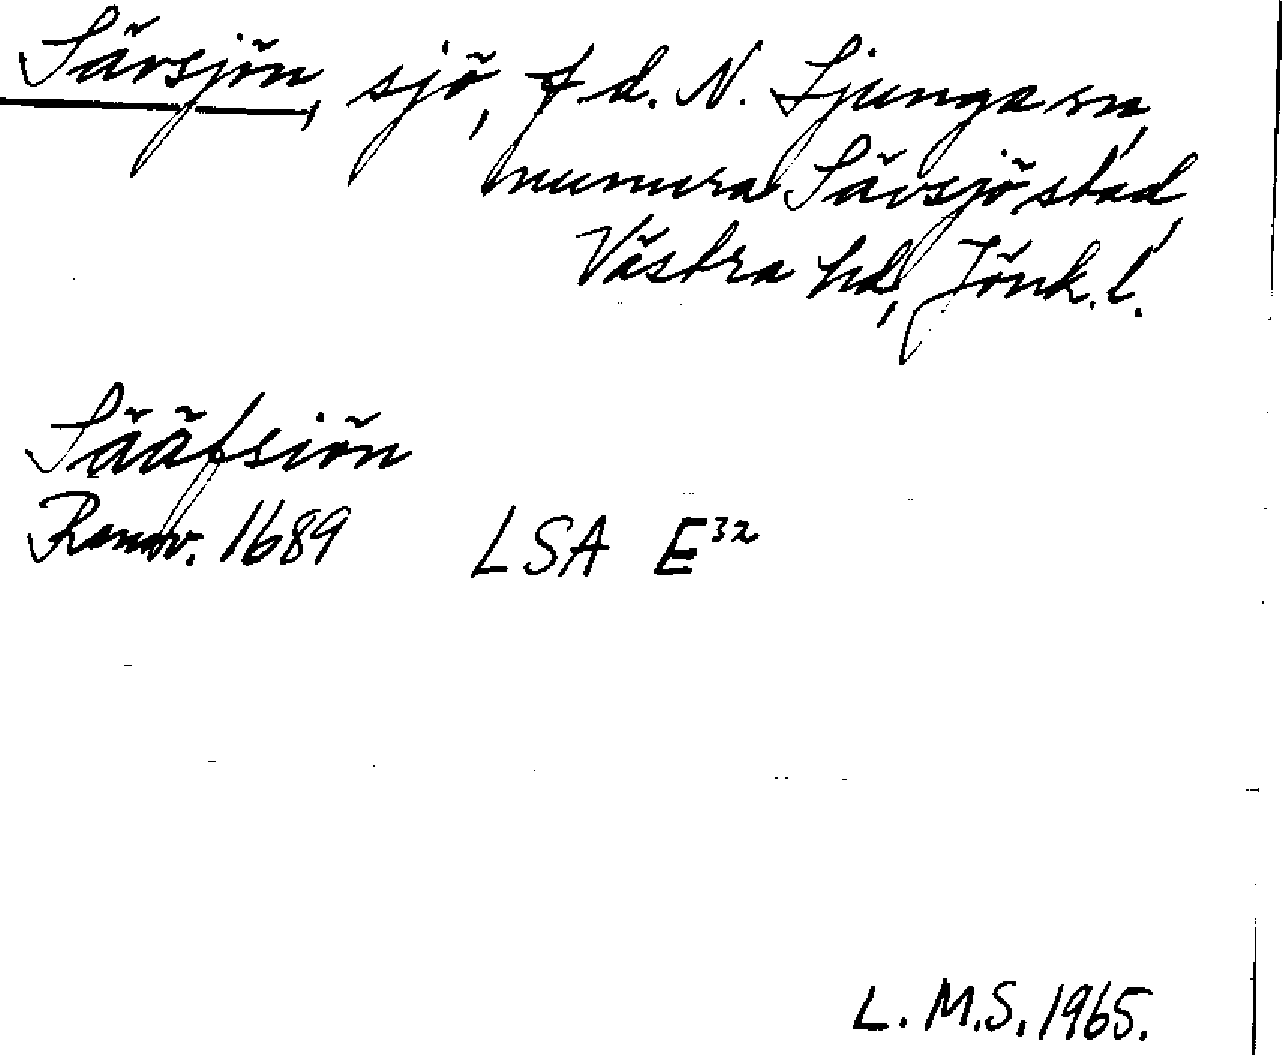 Sävsjön, sjö, f d. N. Ljunga sn,
numera Sävsjö stad,
Västra hd, Jönk. l.
Sääfsiön
Renov. 1689 LSA E³²
L. M.S. 1965.